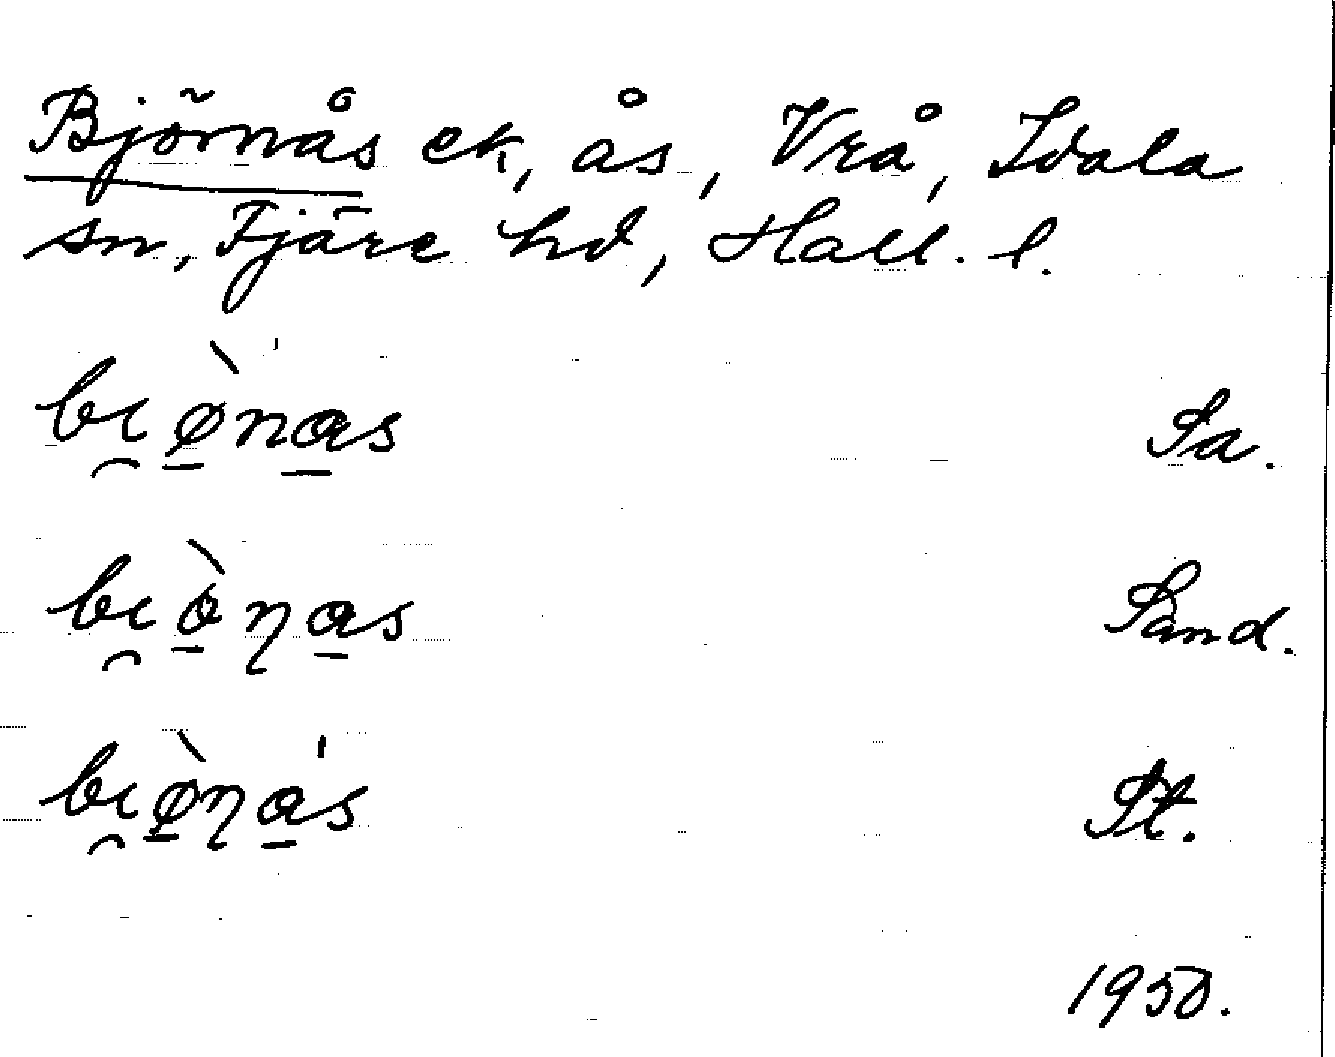 Björnås ek, ås, Vrå, Idala
sn, Fjäre hd, Hall. l.
bi̯ø̠̀na̠s Sa.
bi̯ò̠ɳa̠s Sand.
bi̯ø̠̀ɳa̠'s St.
1950.